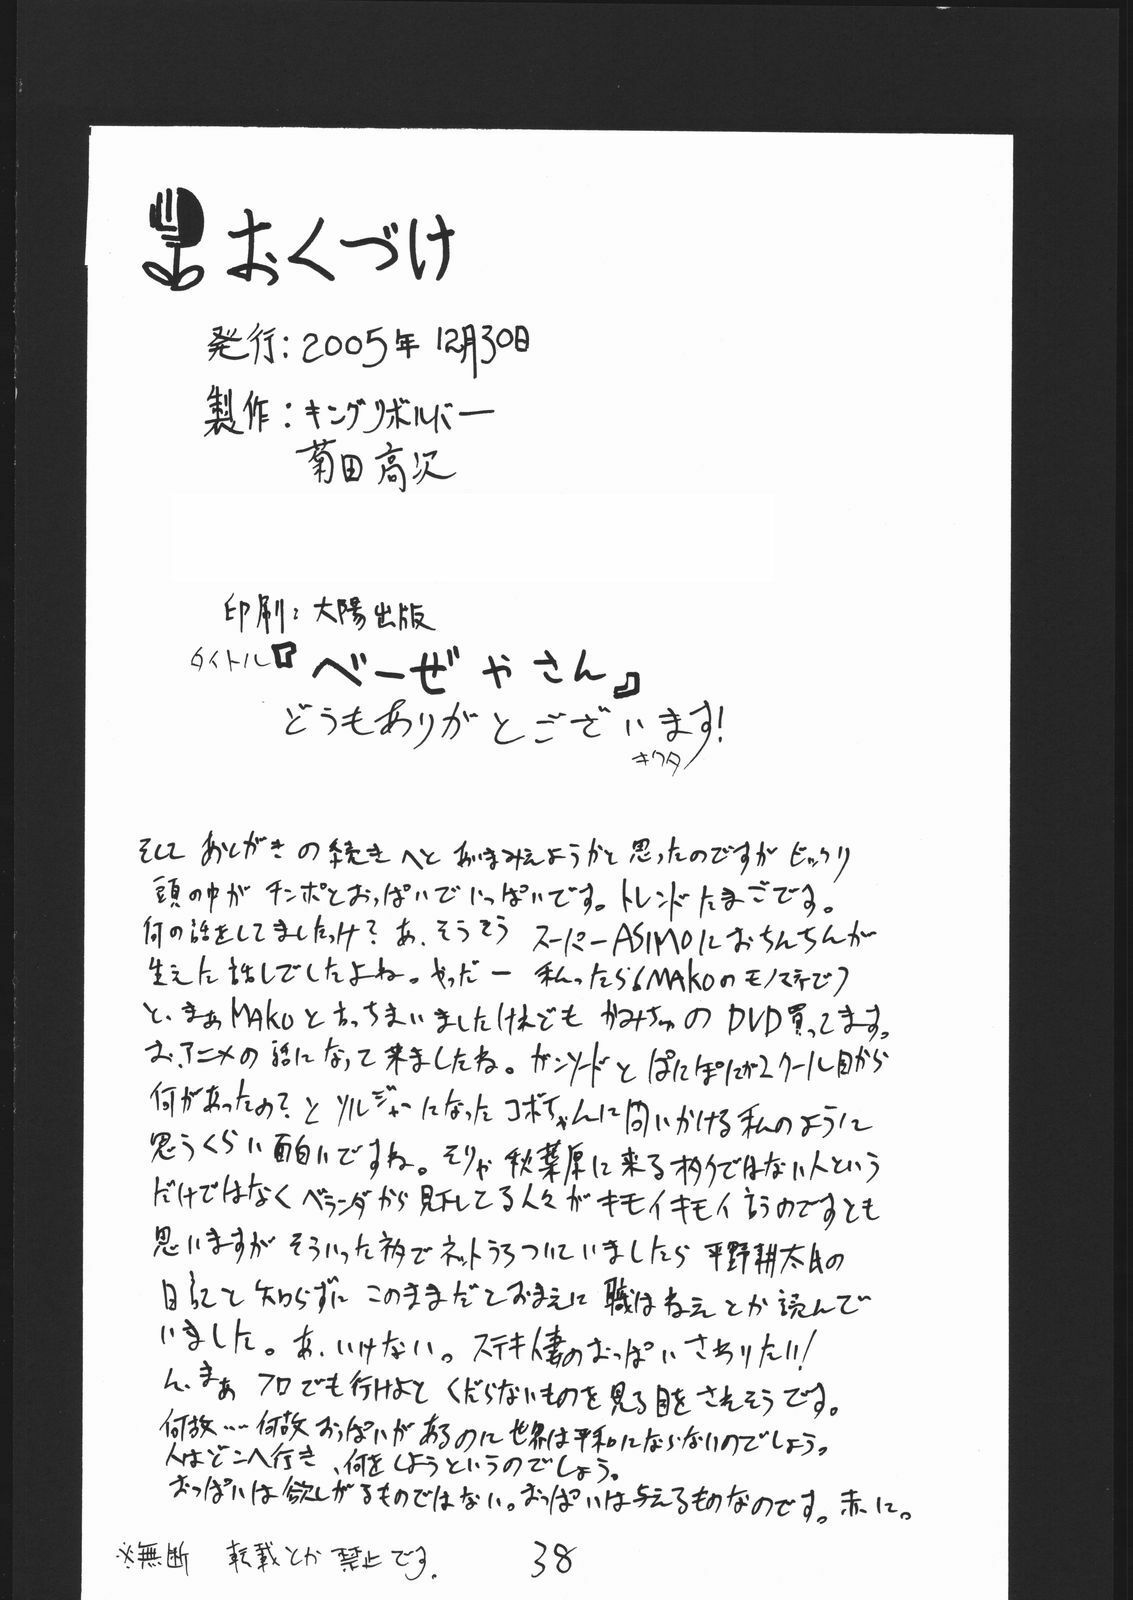 おくづけ
発行：2005年12月30日
製作：キングリボルバー
菊田高次
印刷：大陽出版
タイトル『べーぜやさん』
どうもありがとございます！
キクタ
そして あとがきの続きへと あいまみえようかと思ったのですが ビックリ
頭の中が チンポとおっぱいでいっぱいです。トレンドたまごです。
何の話をしてましたっけ？あ、そうそう スーパーASIMOにおちんちんが
生えた話しでしたよね。やっだー 私ったら(MAKOのモノマネで)
と、まぁMAKOと言っちまいましたけれども かみちゅのDVD買ってます。
お、アニメの話になって来ましたね。ガンソードとぱにぽにが2クール目から
何があったの？とソルジャーになったコボちゃんに問いかける私のように
思うくらい面白いですね。そりゃ秋葉原に来るオタクではない人という
だけではなくベランダから見下してる人々がキモイキモイ言うのですとも
思いますが そういった訳でネットうろついていましたら 平野耕太氏の
日記と知らずに このままだとおまえに 職はねぇ とか読んで
いました。あ、いけない。ステキ人妻のおっぱいさわりたい！
ん、まぁ フロでも行けよと くだらないものを見る目をされそうです。
何故…何故おっぱいがあるのに世界は平和にならないのでしょう。
人はどこへ行き、何をしようというのでしょう。
おっぱいは欲しがるものではない。おっぱいは与えるものなのです。赤に。
※無断 転載とか禁止です。
38